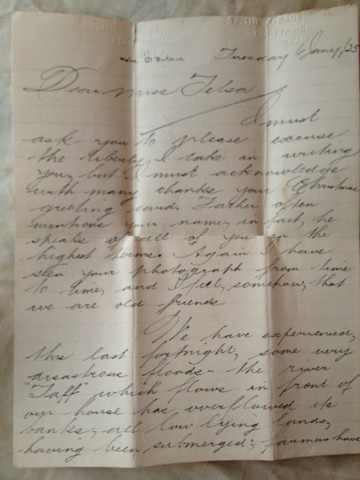 Tuesday 6 Jany/25
Dear Miss Telsa
I must
ask you to please excuse
the liberty I take in writing
you, but I must acknowledge
with many thanks your Christmas
greeting card. Father often
mentions your name, in fact, he
speaks of all of you in the
highest terms. Again I have
seen your photograph from time
to time, and I feel, somehow, that
we are old friends
We have experienced,
this last fortnight, some very
disastrous floods - the river
"Taff" which flows in front of
our house has overflowed its
banks, all low lying lands,
having been submerged; farmers have